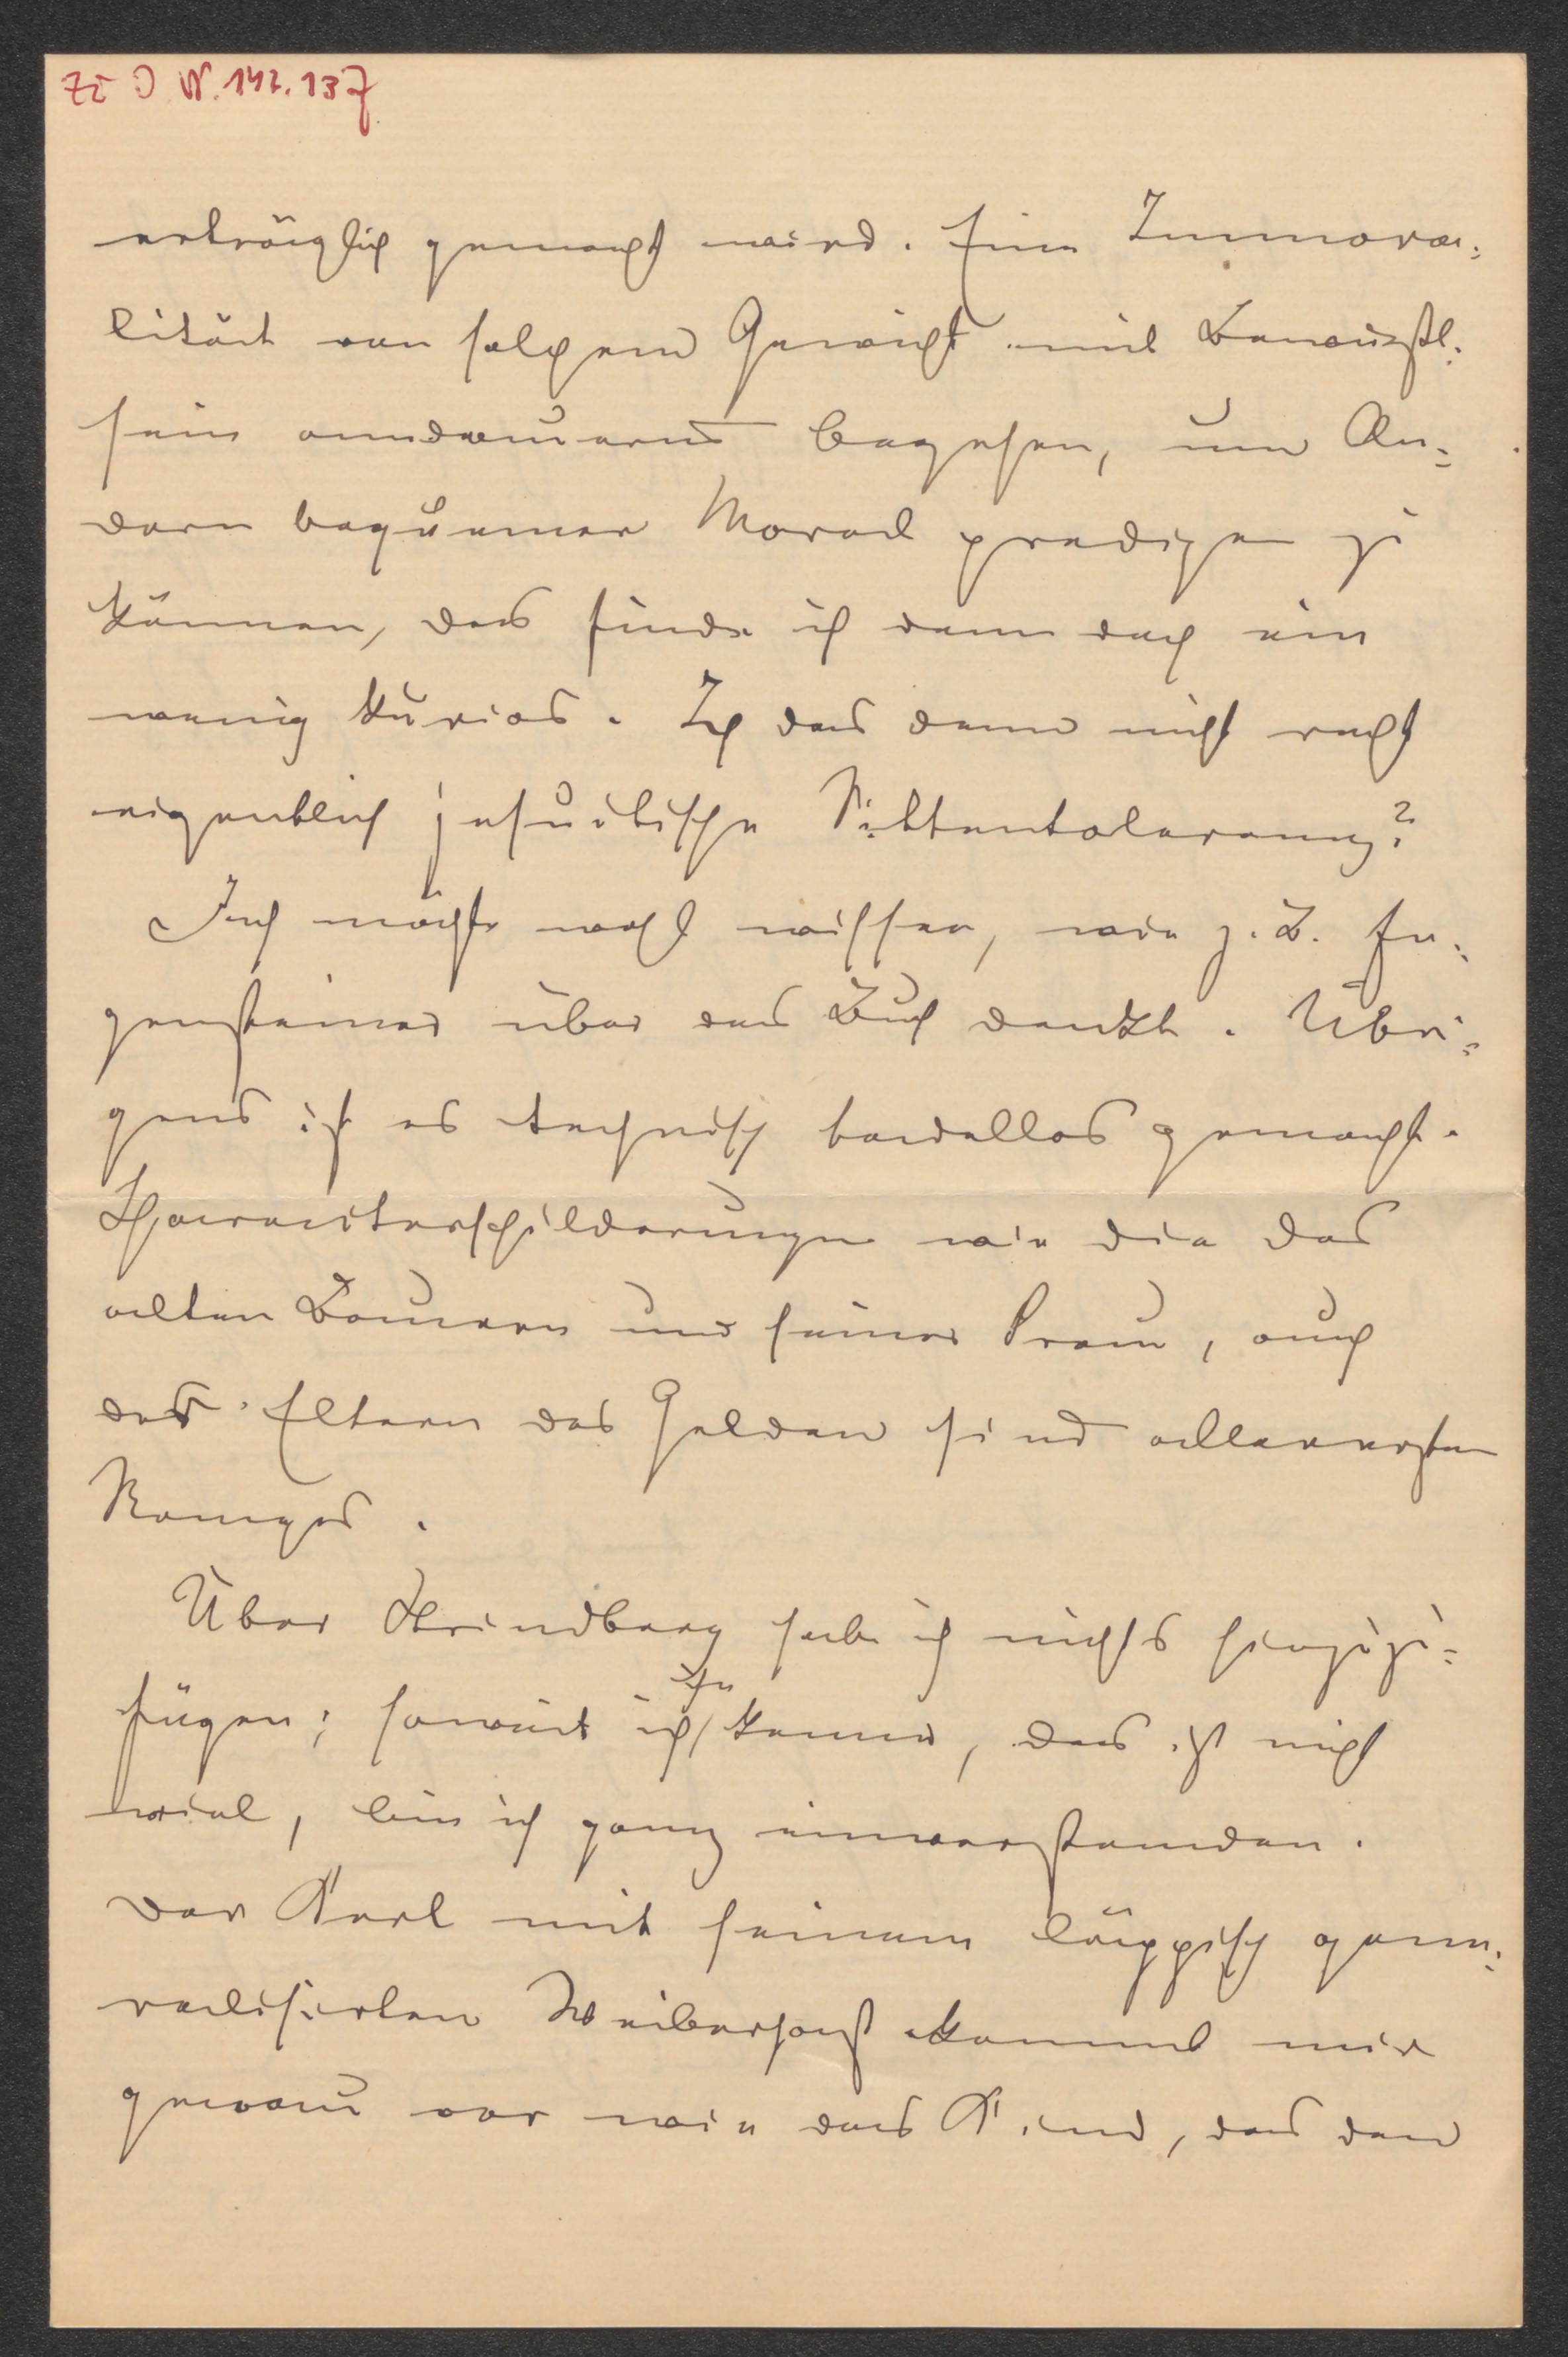 Zs J. N. 142.137
erträglich gemacht wird. Eine Immora-
lität von solchem Gewicht mit Bewusst-
sein andauernd begehen, um An-
dern bequemer Moral predigen zu
können, das finde ich denn doch ein
wenig kurios. Ist das denn nicht recht
eigentlich jesuitische Sittentoleranz?
Ich möchte wohl wissen, wie z. B. Eu-
gensteiner über das Buch denkt. Übri-
gens ist es technisch tadellos gemacht.
Charakterschilderungen wie die des
alten Bauern und seiner Frau, auch
der Eltern des Helden sind allerersten
Ranges.
Über Strindberg habe ich nichts hinzuzu-
fügen; soweit ich ihn kenne, das ist nicht
viel, bin ich ganz einverstanden.
Der Kerl mit seinem läppisch gene-
ralisierten Weiberhaß kommt mir
genau vor wie das Kind, das den